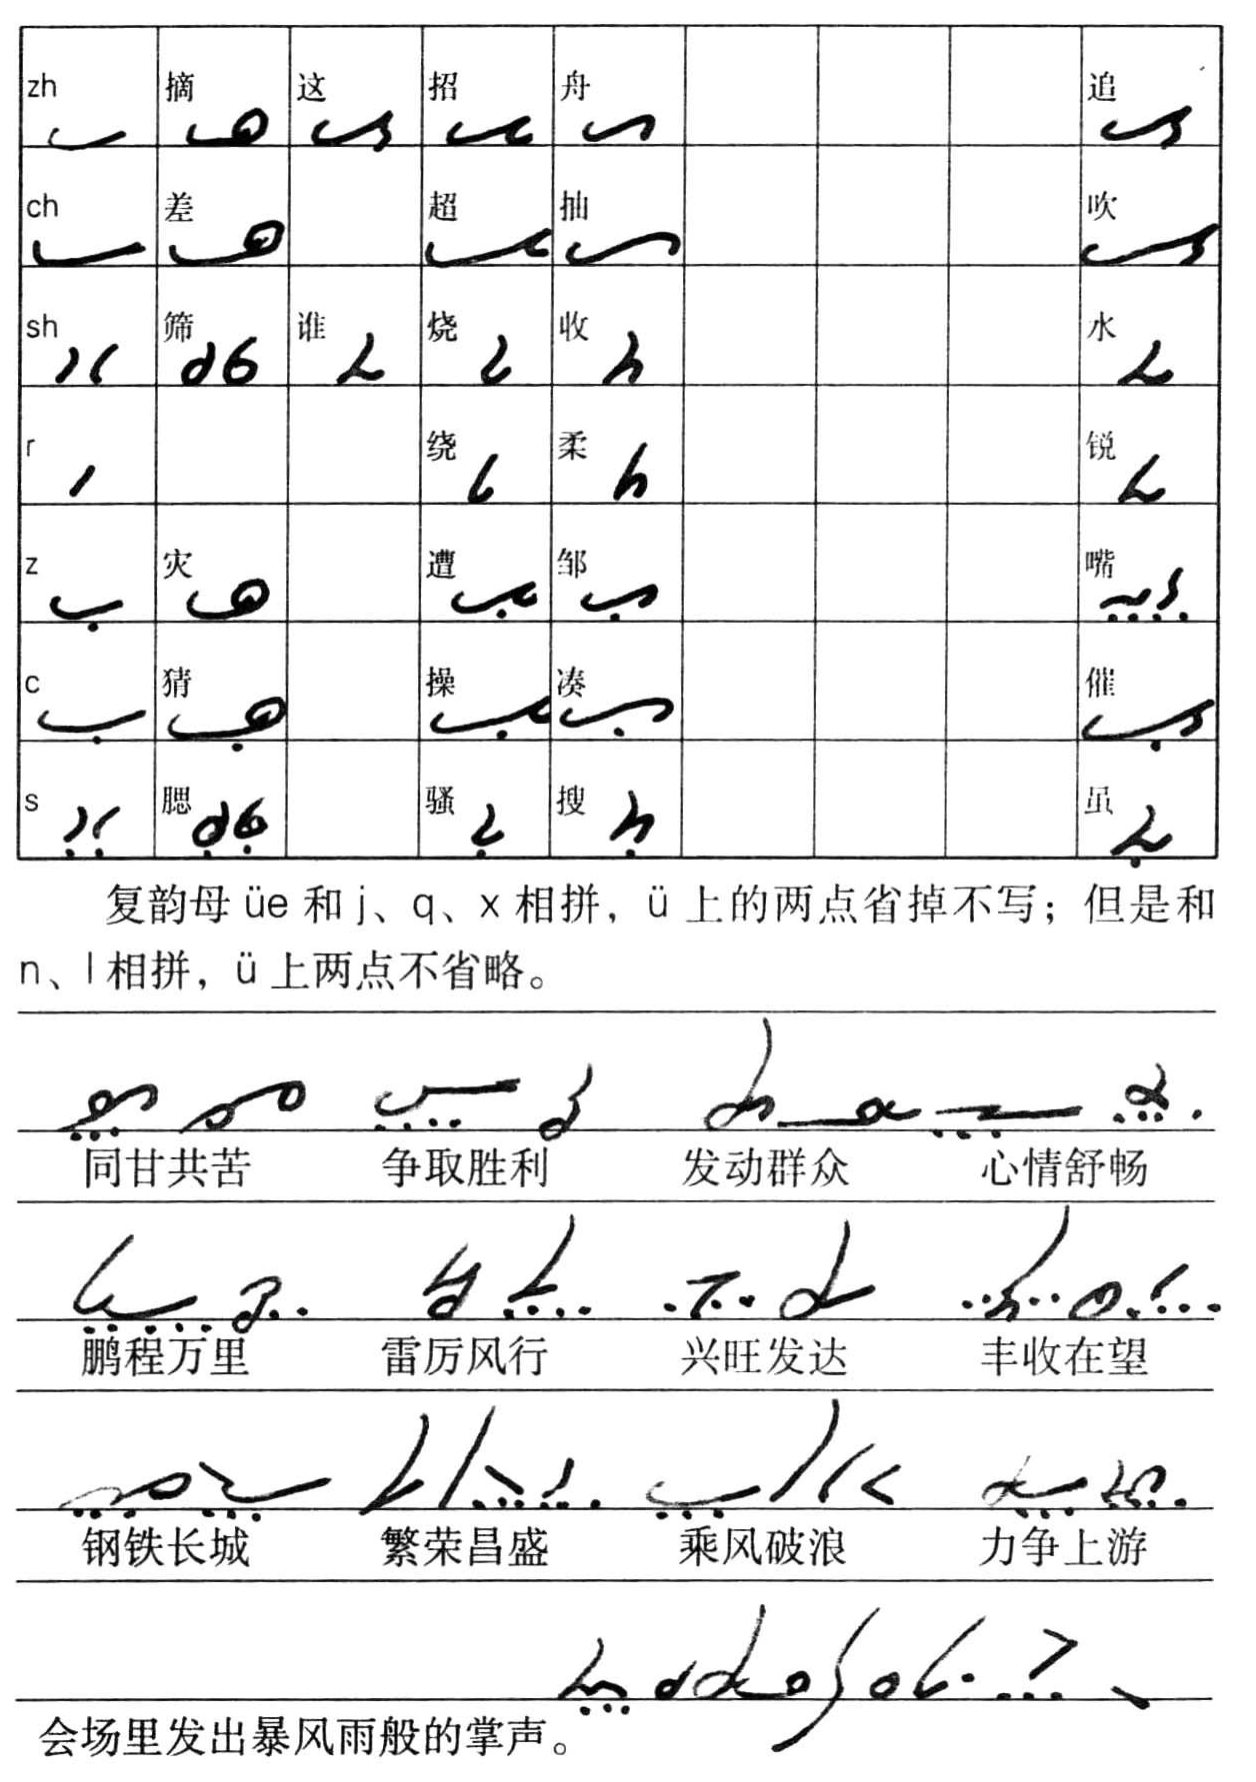 zh 摘 这 招 舟 追
ch 差 超 抽 吹
sh 筛 谁 烧 收 水
r 绕 柔 锐
z 灾 遭 邹 嘴
c 猜 操 凑 催
s 腮 骚 搜 虽
复韵母 üe 和 j、q、x 相拼，ü 上的两点省掉不写；但是和
n、l 相拼，ü 上两点不省略。
同甘共苦 争取胜利 发动群众 心情舒畅
鹏程万里 雷厉风行 兴旺发达 丰收在望
钢铁长城 繁荣昌盛 乘风破浪 力争上游
会场里发出暴风雨般的掌声。